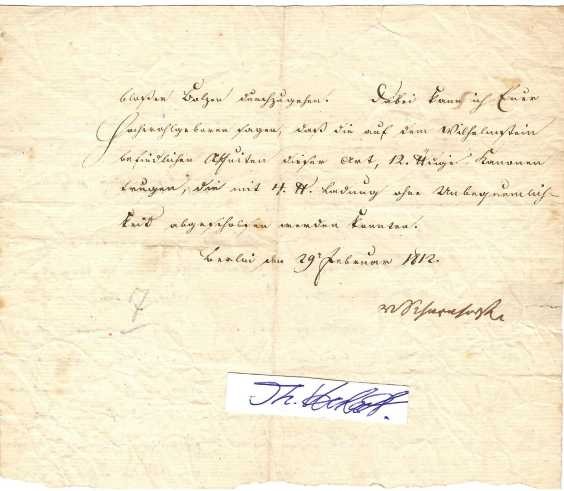 bloßen Bolzen durchzugehen. Dabei kann ich Euer
Hochwohlgeboren sagen, daß die auf dem Wilhelmstein
befindlichen dieser Art, 12. ℔dige Kanonen
trugen, die mit 4. ℔. Ladung ohne Unbequemlich-
keit abgeschossen werden konnten.
Berlin den 29t Februar 1812.
vScharnhorst
7
Th.